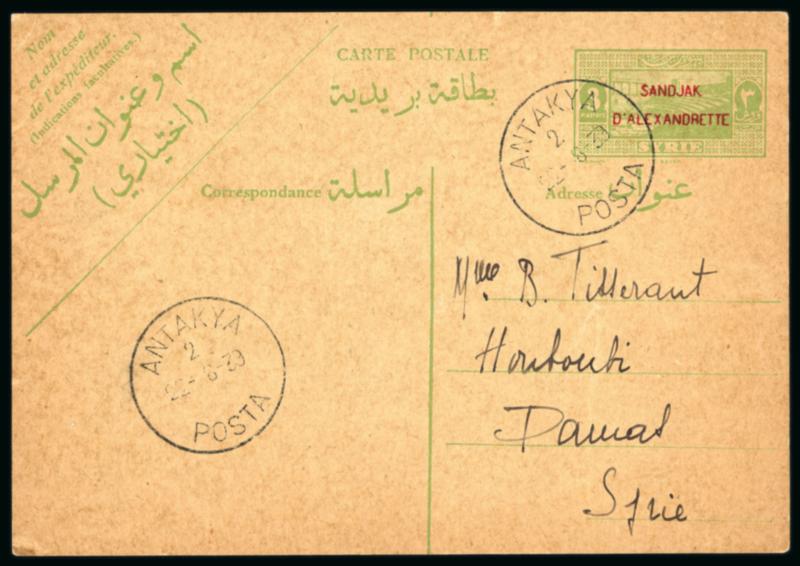 Nom
et adresse
de l'expéditeur.
(Indications facultatives.)
اسم وعنوان المرسل
(اختياري)
CARTE POSTALE
بطاقة بريدية
SANDJAK
D'ALEXANDRETTE
SYRIE
ANTAKYA
2
22-6-39
POSTA
Correspondance مراسلة
Adresse عنوان
Mme B. Tisserant
Damas
Syrie
ANTAKYA
2
22-6-39
POSTA